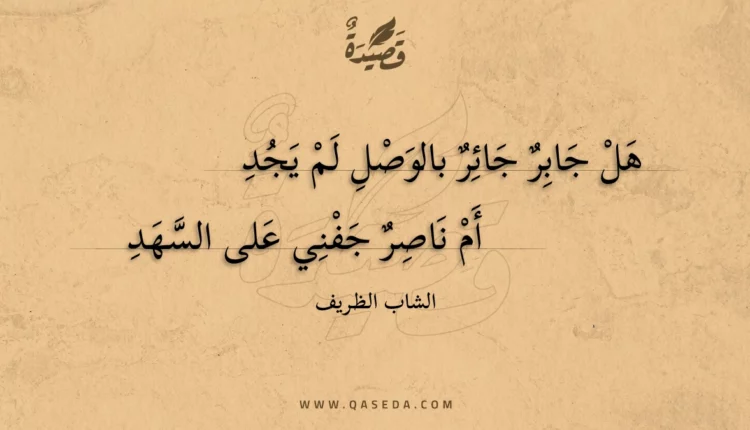 قَصِيدَةٌ
هَلْ جَابِرٌ جَائِرٌ بالوَصْلِ لَمْ يَجُدِ
أَمْ نَاصِرٌ جَفْنِي عَلى السَّهَدِ
الشاب الظريف
WWW.QASEDA.COM